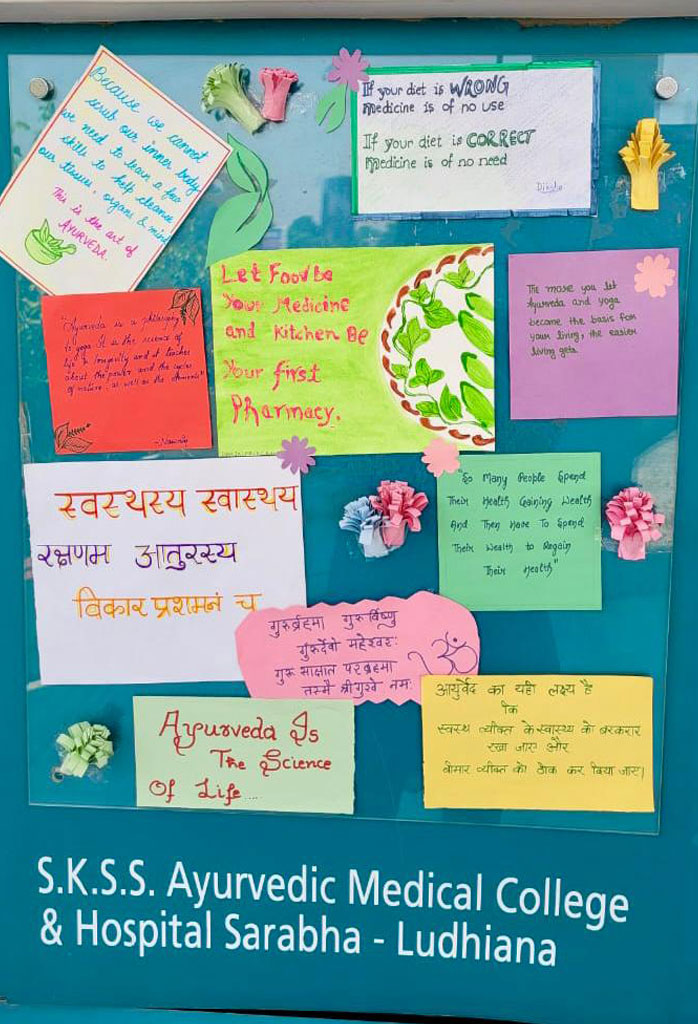 Because we cannot
scrub our inner body
we need to learn a few
skills to help cleanse
our tissues, organs & mind
This is the art of
AYURVEDA.
If your diet is WRONG
Medicine is of no use
If your diet is CORRECT
Medicine is of no need
Let Food be
Your Medicine
and Kitchen Be
Your first
Pharmacy.
The more you let
Ayurveda and yoga
become the basis for
your living, the easier
living gets.
"Ayurveda is a philosophy
to yoga It is the science of
life & longevity and it teaches
about the power and the cycles
of nature, as well as the elements"
स्वस्थस्य स्वास्थय
रक्षणम आतुरस्य
विकार प्रशमनं च
"So Many People Spend
Their Health Gaining Wealth
And Then Have To Spend
Their Wealth to Regain
Their Health"
गुरुब्रहमा गुरु र्विष्णु
गुरुर्देवो महेश्वरः
गुरु साक्षात परब्रहमा
तस्मै श्रीगुरुवे नमः
ॐ
Ayurveda Is
The Science
Of Life...
आयुर्वेद का यही लक्ष्य है
कि
स्वस्थ व्यक्ति के स्वास्थ्य को बरकरार
रखा जाए और
बीमार व्यक्ति को ठीक कर दिया जाए।
S.K.S.S. Ayurvedic Medical College
& Hospital Sarabha - Ludhiana